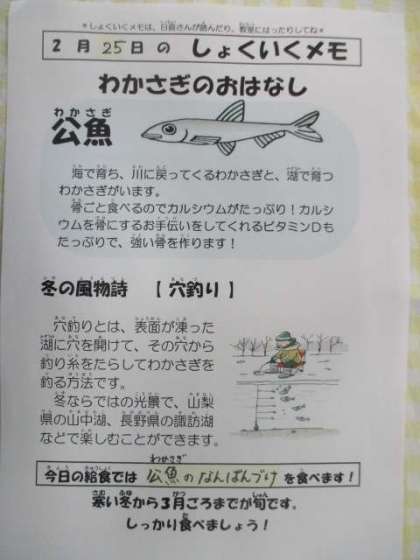 ＊しょくいくメモは、日直さんが読んだり、教室にはったりしてね＊
2月25日の しょくいくメモ
わかさぎのおはなし
わかさぎ
公魚
海で育ち、川に戻ってくるわかさぎと、湖で育つ
わかさぎがいます。
骨ごと食べるのでカルシウムがたっぷり！カルシ
ウムを骨にするお手伝いをしてくれるビタミンDも
たっぷりで、強い骨を作ります！
冬の風物詩 【穴釣り】
穴釣りとは、表面が凍った
湖に穴を開けて、その穴から
釣り糸をたらしてわかさぎを
釣る方法です。
冬ならではの光景で、山梨
県の山中湖、長野県の諏訪湖
などで楽しむことができます。
わかさぎ
今日の給食では 公魚のなんばんづけ を食べます！
寒い冬から3月ころまでが旬です。
しっかり食べましょう！